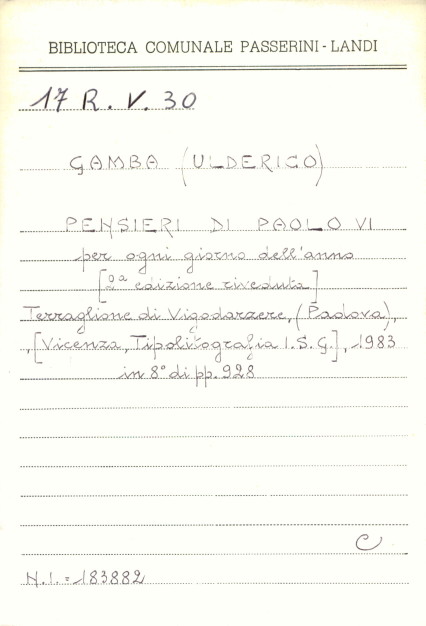 BIBLIOTECA COMUNALE PASSERINI-LANDI
17 R. V. 30
GAMBA (ULDERICO)
PENSIERI DI PAOLO VI
per ogni giorno dell'anno
[2ª edizione riveduta]
Terraglione di Vigodarzere, (Padova),
, [Vicenza, Tipolitografia I.S.G.], 1983
in 8° di pp. 928
C
N.I. = 183882